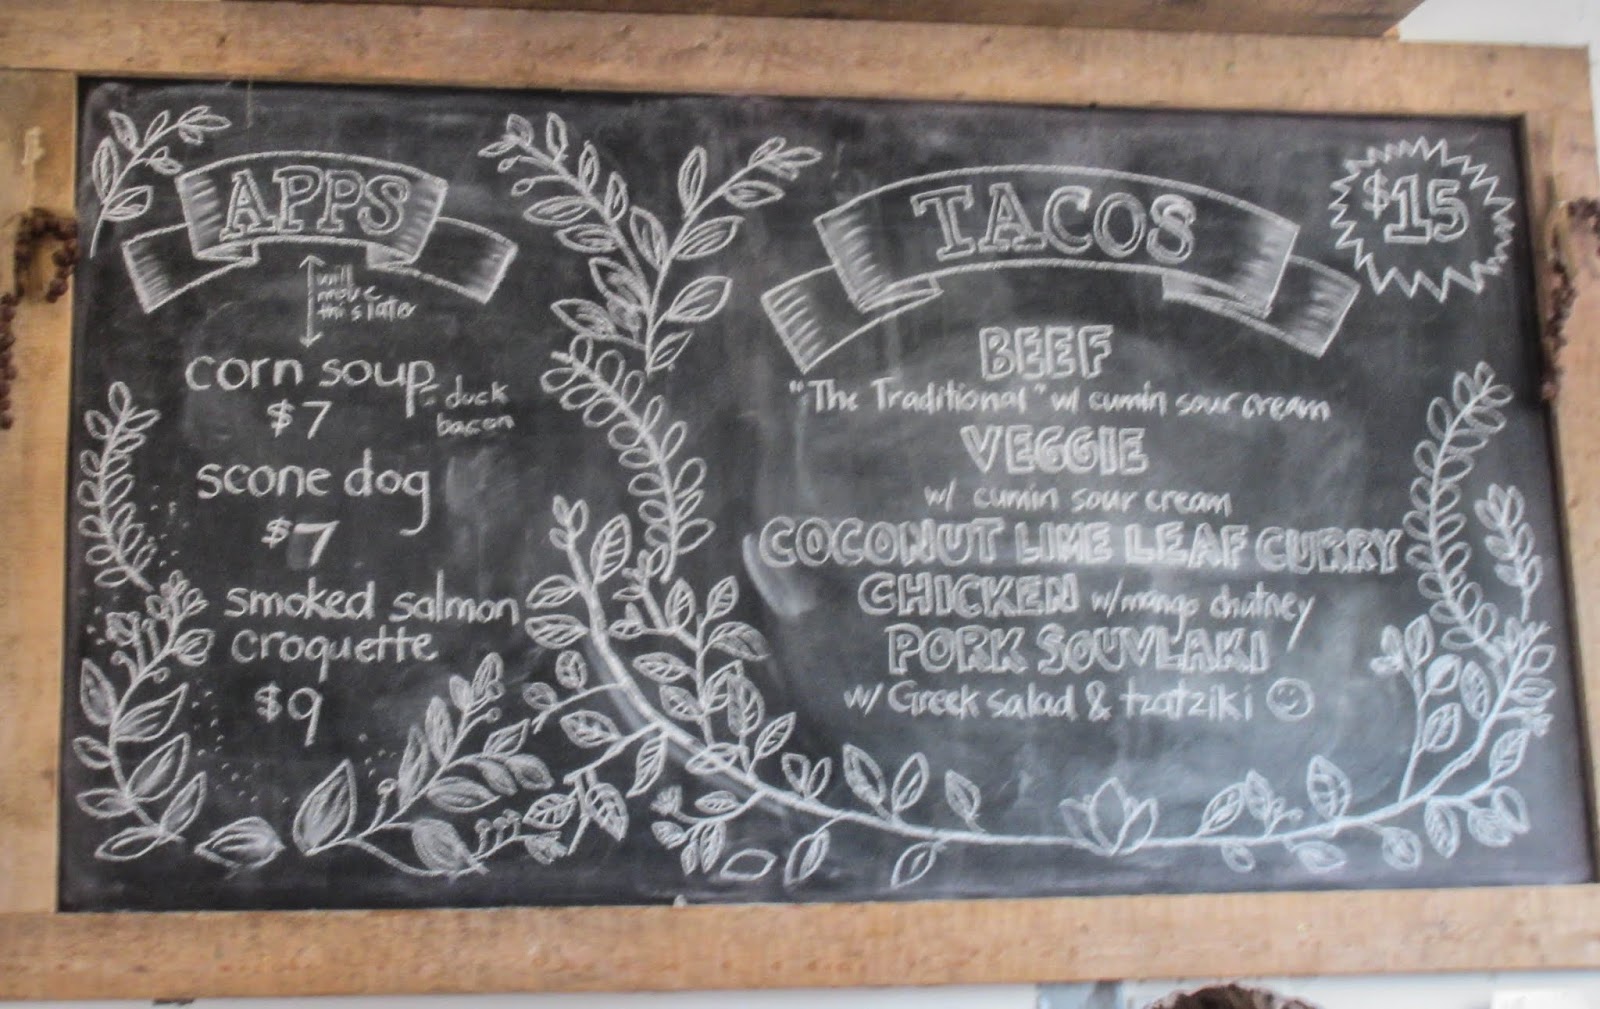 APPS
will
move
this later
corn soup
- duck
bacon
$7
scone dog
$7
smoked salmon
croquette
$9
TACOS
$15
BEEF
"The Traditional" w/ cumin sour cream
VEGGIE
w/ cumin sour cream
COCONUT LIME LEAF CURRY
CHICKEN w/mango chutney
PORK SOUVLAKI
w/ Greek salad & tzatziki